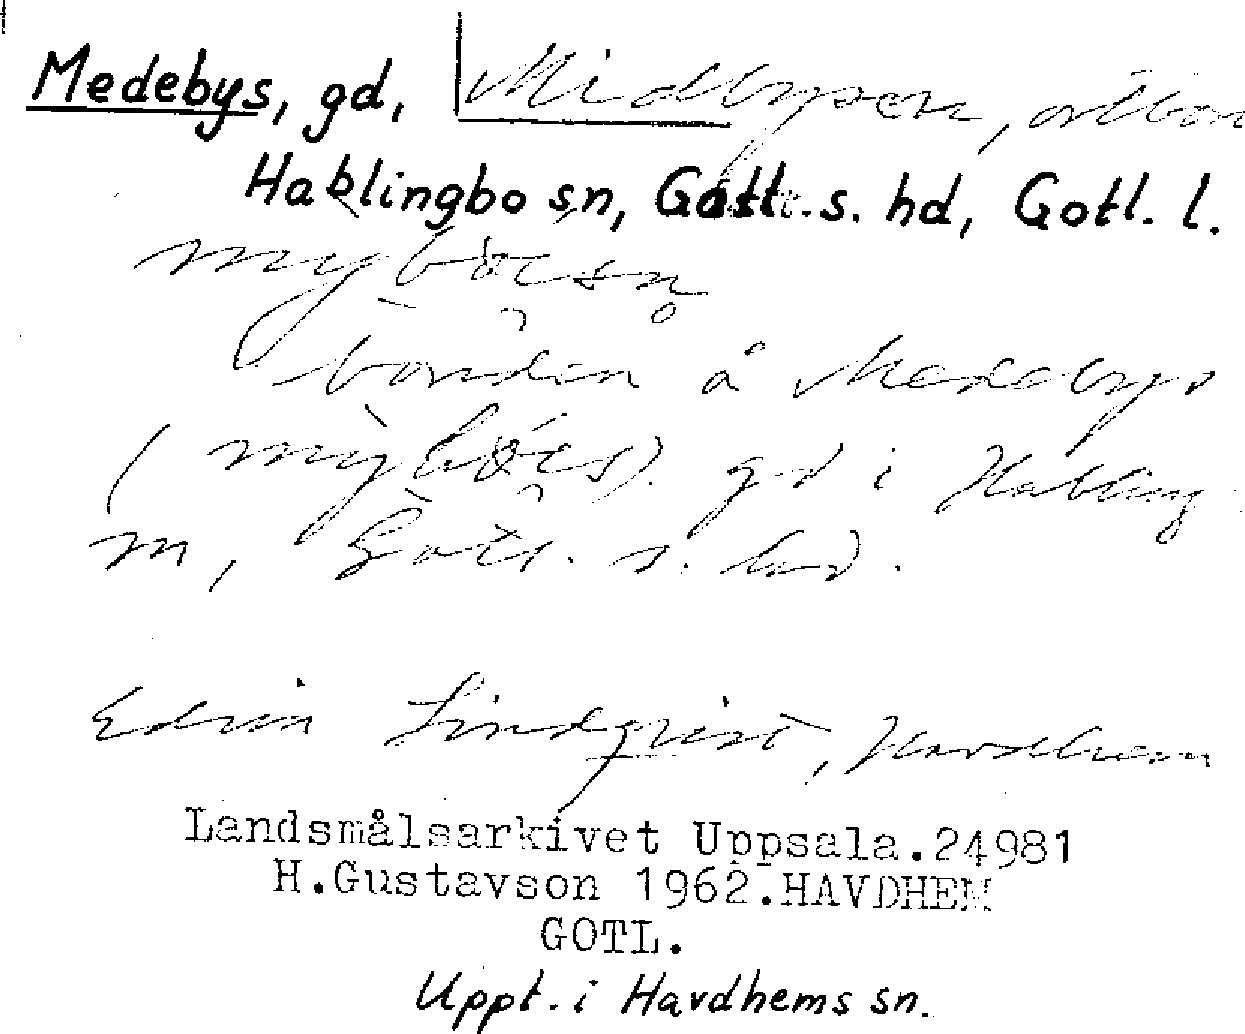 Medebys, gd, Midbysen, ortbon
Hablingbo sn, Gotl. s. hd, Gotl. l.
bonden å Medebys
gd i Habling-
m, Gotl. s. hd.
Edvin Lindqvist, Havdhem
Landsmålsarkivet Uppsala.24981
H.Gustavson 1962.HAVDHEM
GOTL.
Uppt. i Havdhems sn.